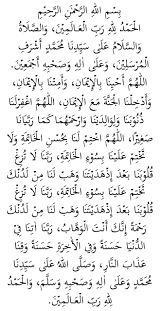 بِسْمِ اللَّهِ الرَّحْمَنِ الرَّحِيْمِ
الْحَمْدُ لِلَّهِ رَبِّ الْعَالَمِيْنَ، وَالصَّلَاةُ
وَالسَّلَامُ عَلَى سَيِّدِنَا مُحَمَّدٍ أَشْرَفِ
الْمُرْسَلِيْنَ، وَعَلَى آلِهِ وَصَحْبِهِ أَجْمَعِيْنَ.
اللَّهُمَّ أَحْيِنَا بِالْإِيْمَانِ، وَأَمِتْنَا بِالْإِيْمَانِ،
وَأَدْخِلْنَا الْجَنَّةَ مَعَ الْإِيْمَانِ، اللَّهُمَّ اغْفِرْلَنَا
ذُنُوْبَنَا وَلِوَالِدَيْنَا وَارْحَمْهُمَا كَمَا رَبَّيَانَا
صَغِيْرًا، اللَّهُمَّ اخْتِمْ لَنَا بِحُسْنِ الْخَاتِمَةِ وَلَا
تَخْتِمْ عَلَيْنَا بِسُوْءِ الْخَاتِمَةِ، رَبَّنَا لَا تُزِغْ
قُلُوْبَنَا بَعْدَ إِذْهَدَيْتَنَا وَهَبْ لَنَا مِنْ لَدُنْكَ
تَخْتِمْ عَلَيْنَا بِسُوْءِ الْخَاتِمَةِ، رَبَّنَا لَا تُزِغْ
قُلُوْبَنَا بَعْدَ إِذْهَدَيْتَنَا وَهَبْ لَنَا مِنْ لَدُنْكَ
رَحْمَةً إِنَّكَ أَنْتَ الْوَهَّابُ، رَبَّنَا آتِنَا فِي
الدُّنْيَا حَسَنَةً وَفِي الْآخِرَةِ حَسَنَةً وَقِنَا
عَذَابَ النَّارِ، وَصَلَّى اللهُ عَلَى سَيِّدِنَا
مُحَمَّدٍ وَعَلَى آلِهِ وَصَحْبِهِ وَسَلَّمَ، وَالْحَمْدُ
لِلَّهِ رَبِّ الْعَالَمِيْنَ.